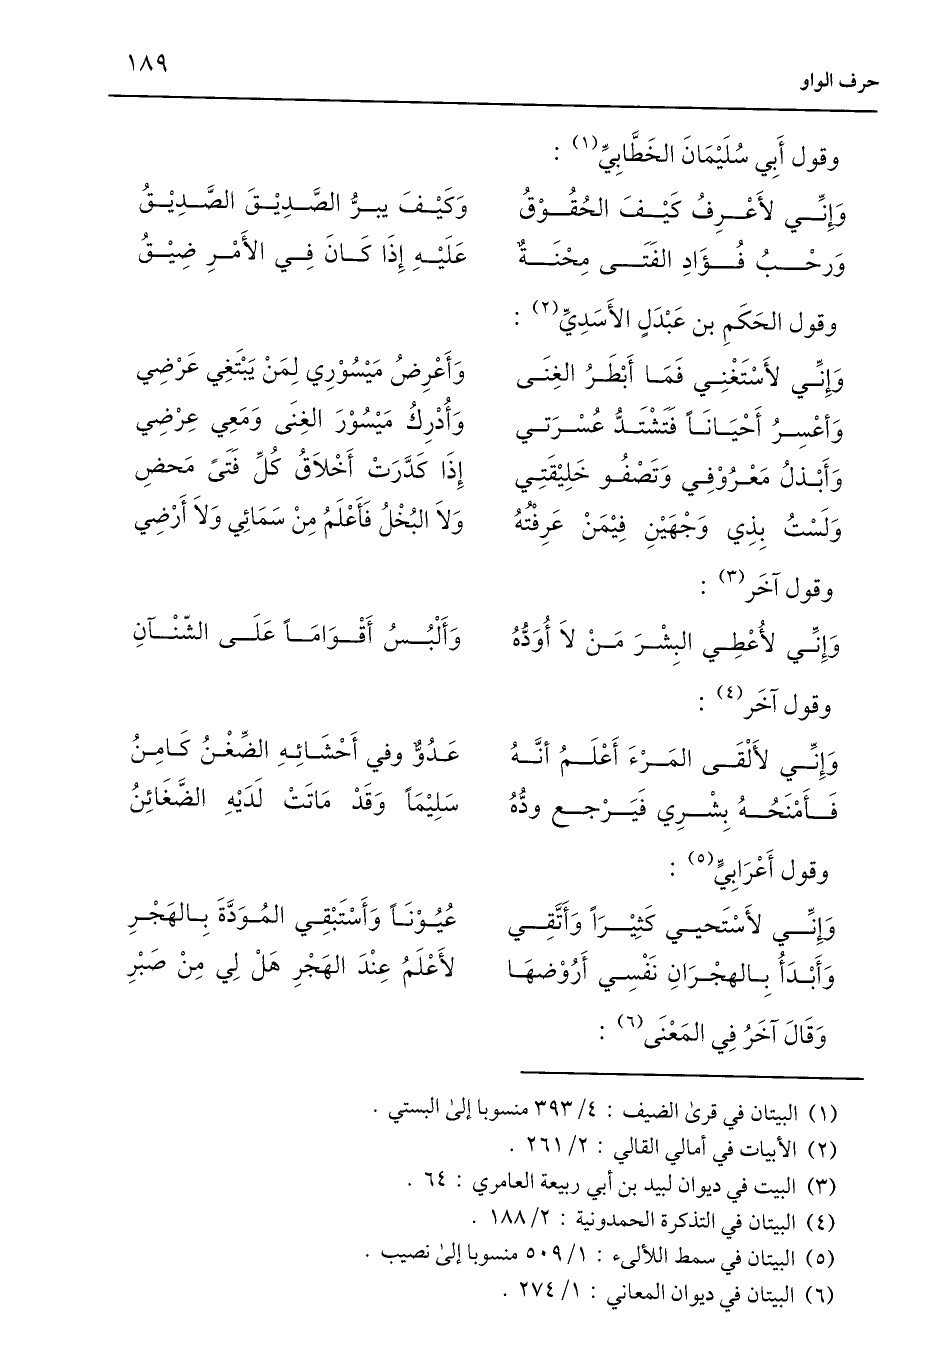 حرف الواو ١٨٩
وقول أَبي سُلَيْمَانَ الخَطَّابِيِّ(١) :
وَإِنِّــي لأَعْــرِفُ كَيْــفَ الحُقُــوْقُ وَكَيْــفَ يبــرُّ الصَّــدِيْــقَ الصَّــدِيْــقُ
وَرحْــبُ فُــؤَادِ الفَتَــى مِحْنَــةٌ عَلَيْــهِ إِذَا كَــانَ فِــي الأَمْــرِ ضِيْــقُ
وقول الحَكَمِ بن عَبْدَلٍ الأَسَدِيِّ(٢) :
وَإِنِّــي لأَسْتَغْنِــي فَمَــا أَبْطَــرُ الغِنَــى وَأَعْرِضُ مَيْسُوْرِي لِمَنْ يَبْتَغِي عَرْضِي
وَأعْسِــرُ أَحْيَــانَــاً فَتَشْتَــدُّ عُسْــرَتــي وَأُدْرِكُ مَيْسُوْرَ الغِنَى وَمَعِي عِرْضِي
وَأَبْــذلُ مَعْــرُوْفِــي وَتَصْفُــو خَلِيْقَتِــي إِذَا كَدَّرَتْ أَخْلاَقُ كُلِّ فَتَىً مَحضِ
وَلَسْتُ بِذِي وَجْهَيْنِ فِيْمَنْ عَرِفْتُهُ وَلاَ البُخْلُ فَأَعْلَمُ مِنْ سَمَائِي وَلاَ أَرْضِي
وقول آخَر(٣) :
وَإِنِّــي لأُعْطِــي البِشْــرَ مَــنْ لاَ أُوَدُّهُ وَأَلْبُــسُ أَقْــوَامَــاً عَلَــى الشَّنْــآنِ
وقول آخَر(٤) :
وَإِنِّــي لأَلْقَــى المَــرْءَ أَعْلَــمُ أنَّــهُ عَــدُوٌّ وفي أَحْشَــائِــهِ الضِّغْــنُ كَــامِــنُ
فَــأَمْنَحُــهُ بِشْــرِي فَيَــرْجــع ودُّهُ سَلِيْمَاً وَقَدْ مَاتَتْ لَدَيْهِ الضَّغَائِنُ
وقول أَعْرَابِيٍّ(٥) :
وَإِنِّــي لأَسْتَحيــي كَثِيْــرَاً وَأَتَّقِــي عُيُــوْنَــاً وَأَسْتَبْقِــي المُــوَدَّةَ بِــالهَجْــرِ
وَأَبْــدَأُ بِــالهِجْــرَانِ نَفْسِــي أَرُوْضهَــا لأَعْلَمُ عِنْدَ الهَجْرِ هَلْ لِي مِنْ صَبْرِ
وَقَالَ آخَرُ فِي المَعْنَى(٦) :
(١) البيتان في قرىٰ الضيف : ٤/ ٣٩٣ منسوبا إلىٰ البستي .
(٢) الأبيات في أمالي القالي : ٢/ ٢٦١ .
(٣) البيت في ديوان لبيد بن أبي ربيعة العامري : ٦٤ .
(٤) البيتان في التذكرة الحمدونية : ٢/ ١٨٨ .
(٥) البيتان في سمط اللآلىء : ١/ ٥٠٩ منسوبا إلىٰ نصيب .
(٦) البيتان في ديوان المعاني : ١/ ٢٧٤ .